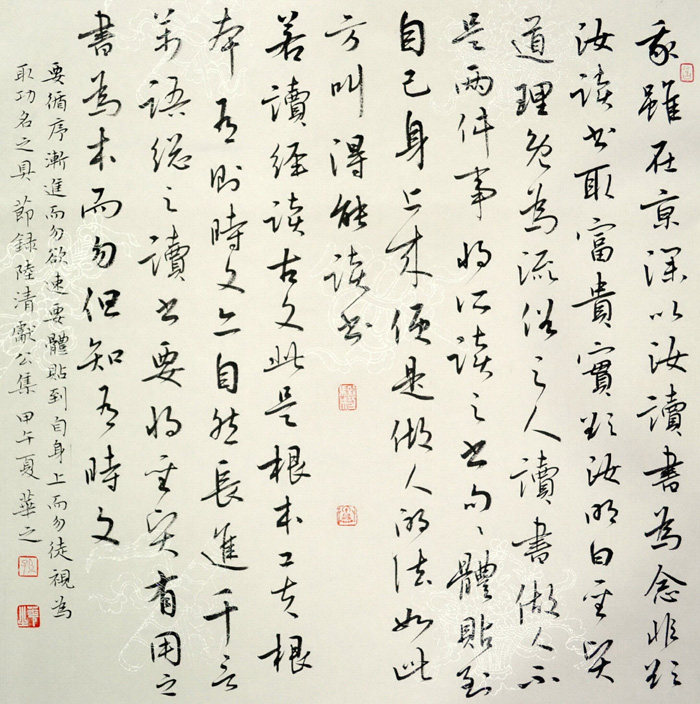 我雖在京深以汝讀書為念非欲
汝读书取富貴實欲汝明白聖賢
道理免為流俗之人讀書做人不
是兩件事将所读之书句々體貼到
自己身上来便是做人的法如此
方叫得能读书
若讀經读古文此是根本工夫根
本有則時文亦自然長進千言
萬語總之讀书要将聖賢有用之
書為本而勿但知有時文
要循序漸進而勿欲速要體貼到自身上而勿徒視為
取功名之具 節録陸清獻公集 甲午夏 華之